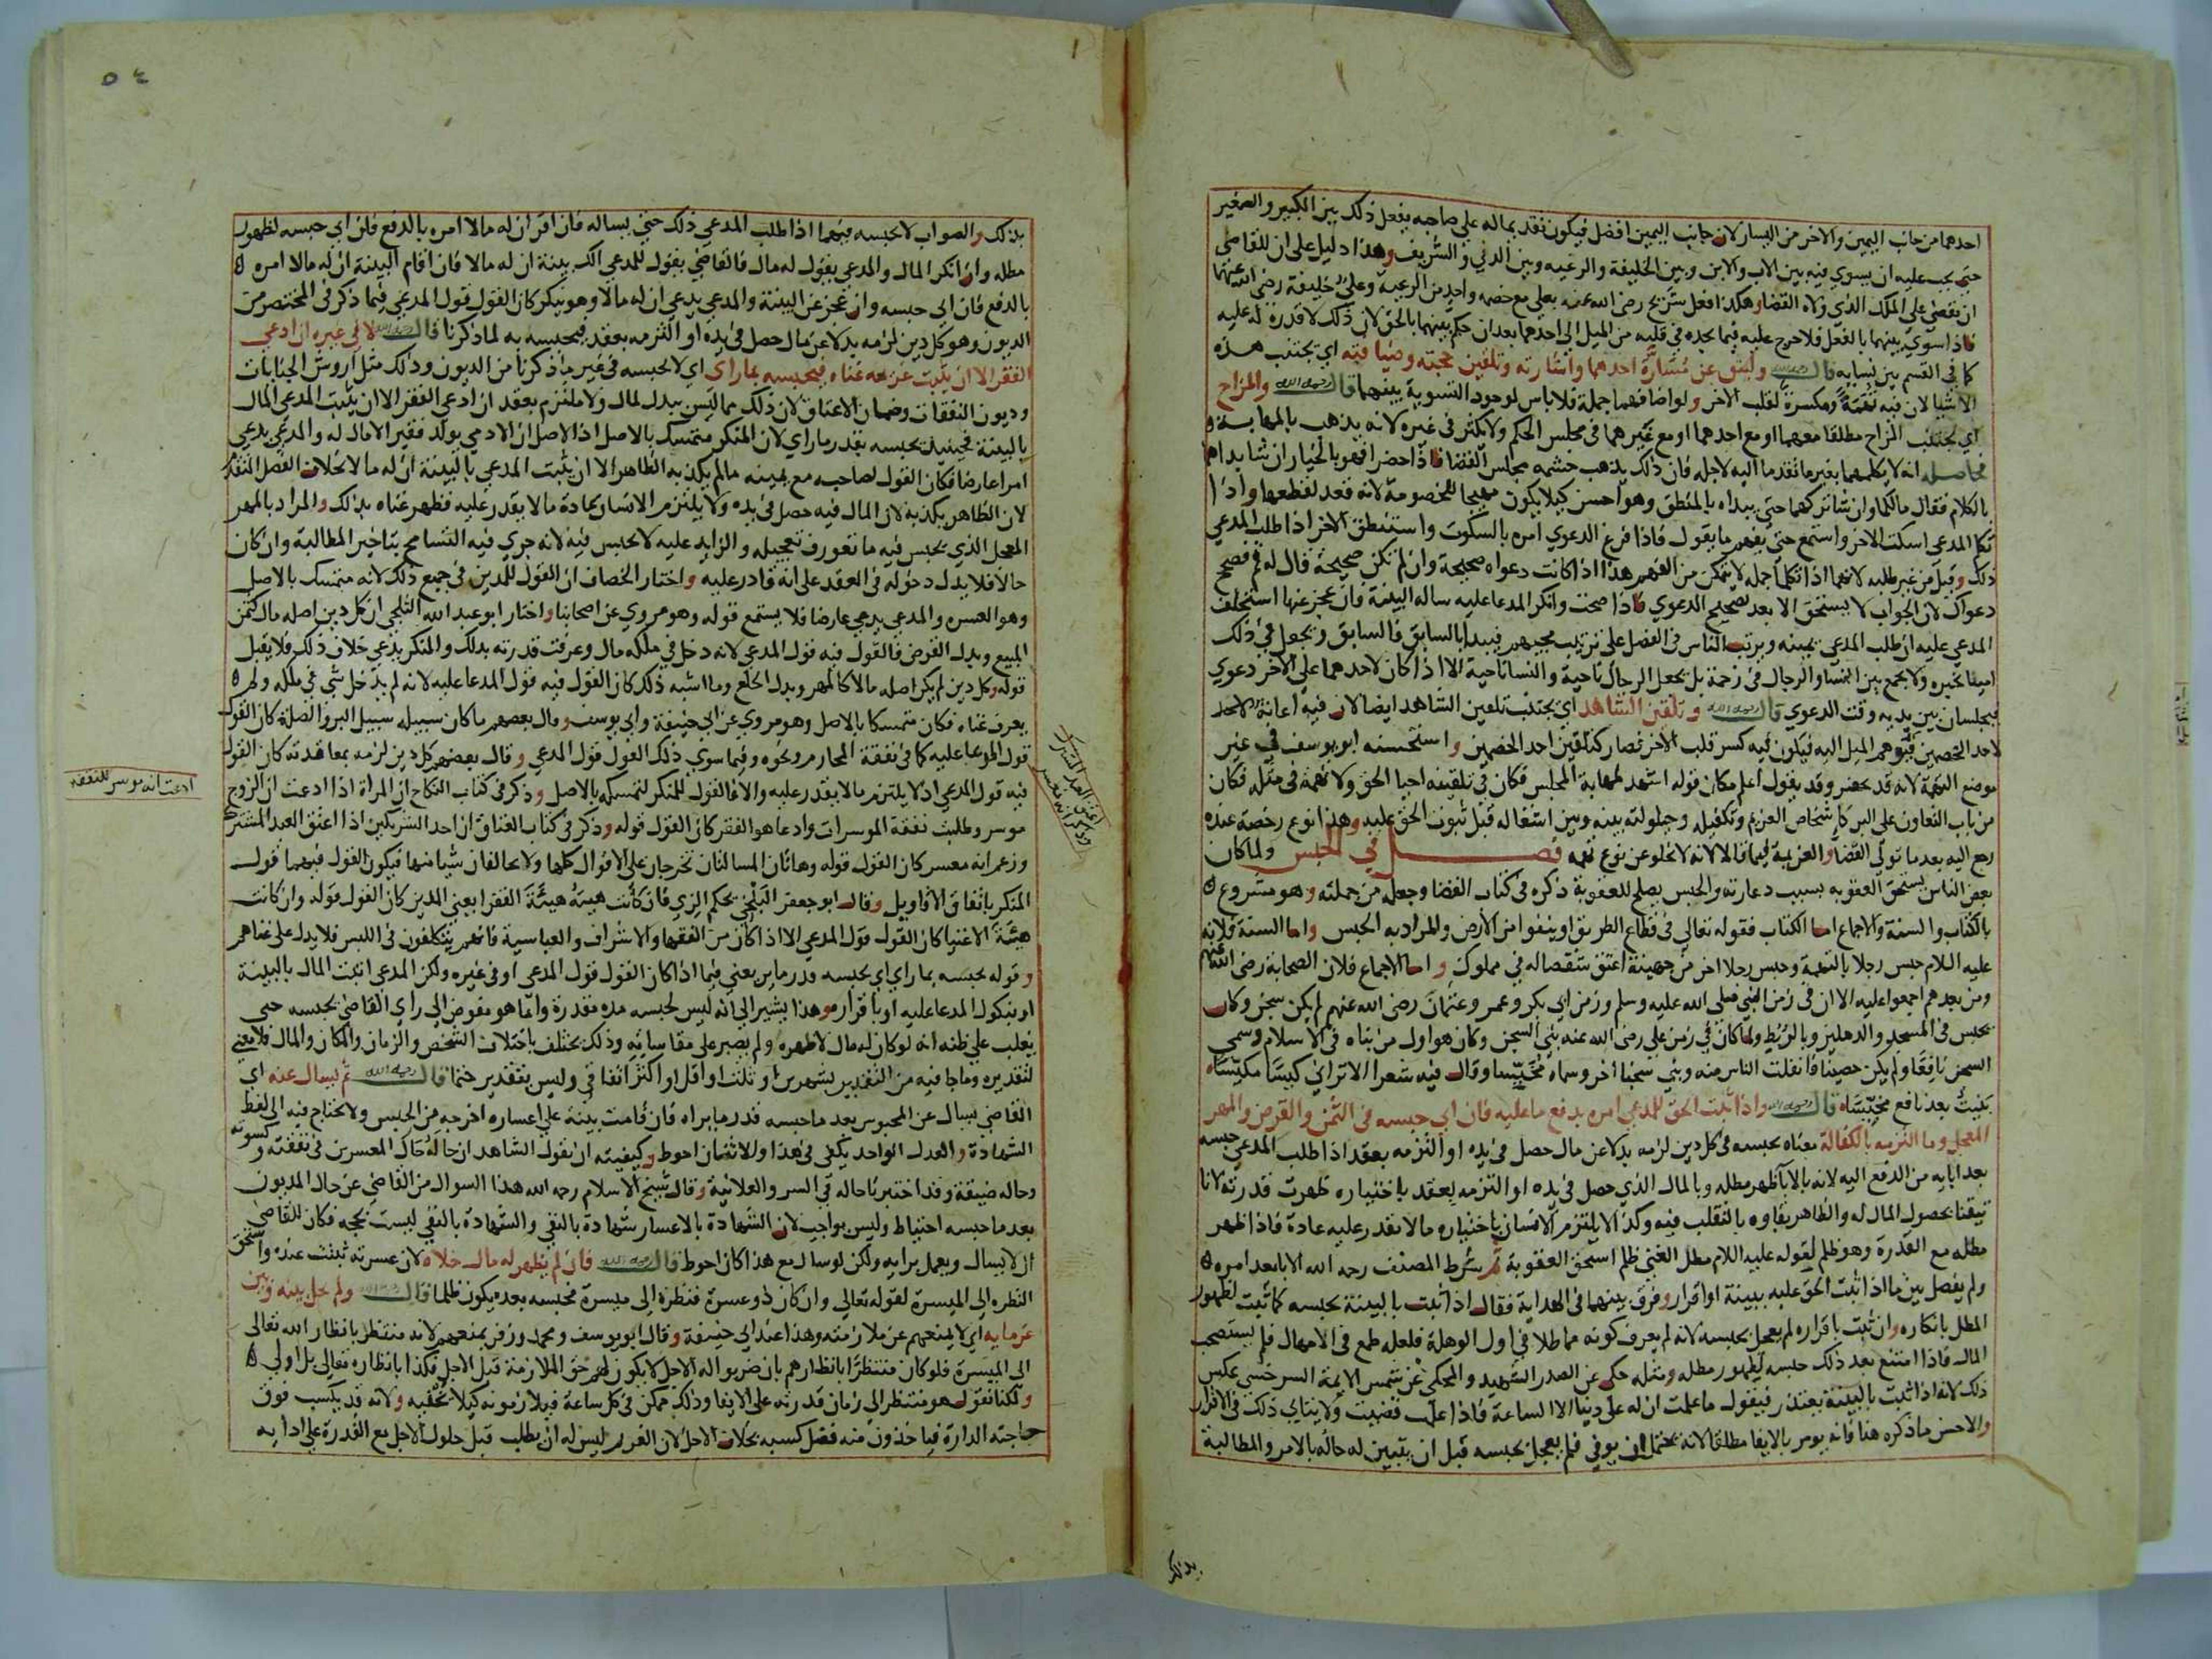 احدهما من جانب اليمين والاخر من اليسار لان جانب اليمين افضل فيكون تقديما له على صاحبه يفعل ذلك بين الكبير والصغير
حتى يجب عليه ان يسوي فيه بين الاب والابن وبين الخليفة والرعيه وبين الدني والشريف وهذا دليل على ان للقاضي
ان يقضي على الملك الذي ولاه القضا وهكذا فعل شريح رضى الله عنه بعلي مع خصمه واحد من الرعية وعلي خليفة رضى الله عنهما
فاذا سوي بينهما بالفعل فلا حرج عليه فيما يجده في قلبه من الميل الى احدهما بعد ان حكم بينهما بالحق لان ذلك لا قدرة له عليه
كما في القسم بين نسايه قال رحمه الله وليتق عن مسارة احدهما واشارته وتلقين حجته وضيافته اي يجتنب هذه
الاشيا لان فيه تهمة ومكسرة لقلب الاخر ولو اضافهما جملة فلا باس لوجود التسوية بينهما قال رحمه الله والمزاح
اي يجتنب المزاح مطلقا معهما او مع احدهما او مع غيرهما في مجلس الحكم ولا يكثر في غيره لانه يذهب بالمهابة و
حاصله انه لا يكلمهما بغير ما تقدما اليه لاجله فان ذلك يذهب حشمه مجلس القضا فاذا حضرا فهو بالخيار ان شا بداهما
بالكلام فقال مالكما وان شا تركهما حتى يبداه بالمنطق وهو احسن كيلا يكون مهيجا للخصومة لانه قعد لقطعها واذا
تكلم المدعي اسكت الاخر واستمع حتى يفهم ما يقول فاذا فرغ الدعوي امره بالسكوت واستنطق الاخر اذا طلب المدعي
ذلك وقيل من غير طلبه لانهما اذا تكلما جمله لا يتمكن من الفهم هذا اذا كانت دعواه صحيحة وان لم تكن صحيحة قال له قم فصحح
دعواك لان الجواب لا يستحق الا بعد تصحيح الدعوي فاذا صحت وانكر المدعا عليه ساله البينة فان عجز عنها استحلف
المدعي عليه ان طلب المدعي يمينه ويرتب الناس في الفصل على ترتيب مجيهم فيبدا بالسابق فالسابق ويجعل في ذلك
امينا يخيره ولا يجمع بين النسا والرجال في زحمة بل يجعل الرجال ناحية والنسا ناحية الا اذا كان لاحدهما على الاخر دعوي
فيجلسان بين يديه وقت الدعوي قال رحمه الله وتلقين الشاهد اي يجتنب تلقين الشاهد ايضا لان فيه اعانة لاحد
لاحد الخصمين فيوهم الميل اليه فيكون فيه كسر قلب الاخر فصار كتلقين احد الخصمين واستحسنه ابو يوسف في غير
موضع التهمة لانه قد يحضر وقد يقول اعلم مكان قوله اشهد لمهابة المجلس فكان في تلقينه احيا الحق ولا تهمة في مثله فكان
من باب التعاون على البر كاشخاص الغريم وتكفيله وحيلولته بينه وبين اشغاله قبل ثبوت الحق عليه وهذا نوع رخصة عنده
رجع اليه بعد ما تولي القضا والعزيمة فيما قالا لانه لا يخلو عن نوع تهمه فصل في الحبس ولما كان
بعض الناس يستحق العقوبه بسبب دعارته والحبس يصلح للعقوبة ذكره في كتاب القضا وجعله من جملته وهو مشروع
بالكتاب والسنة والاجماع اما الكتاب فقوله تعالى في قطاع الطريق او ينفوا من الارض والمراد به الحبس واما السنة فلانه
عليه السلام حبس رجلا بالتهمة وحبس رجلا اخر من جهينة اعتق شقصا له في مملوك واما الاجماع فلان الصحابة رضى الله عنهم
ومن بعدهم اجمعوا عليه الا ان في زمن النبي صلى الله عليه وسلم وزمن ابي بكر وعمر وعثمان رضى الله عنهم لم يكن سجن وكان
يحبس في المسجد والدهليز وبالربط ولما كان في زمن علي رضى الله عنه بني السجن وكان هو اول من بناه في الاسلام وسمي
السجن نافعا ولم يكن حصينا فانفلت الناس منه وبني سجنا اخر وسماه مخيسا وقال فيه شعرا الا تراني كيسا مكيسا
بنيت بعد نافع مخيسا قال رحمه الله واذا ثبت الحق للمدعي امره بدفع ما عليه فان ابي حبسه في الثمن والقرض والمهر
المعجل وما التزمه بالكفالة معناه يحبسه في كل دين لزمه بدلا عن مال حصل في يده او التزمه بعقد اذا طلب المدعي حبسه
بعد ابايه من الدفع اليه لانه بالابا ظهر مطله وبالمال الذي حصل في يده او التزمه بعقد باختياره ظهرت قدرته لانا
تيقنا بحصول المال له والظاهر بقاوه بالتقلب فيه وكذا لا يلتزم الانسان باختياره ما لا يقدر عليه عادة فاذا ظهر
مطله مع القدرة وهو ظلم لقوله عليه السلام مطل الغني ظلم استحق العقوبة ثم شرط المصنف رحمه الله الابا بعد امره
ولم يفصل بين ما اذا ثبت الحق عليه ببينة او اقرار وفرق بينهما في الهداية فقال اذا ثبت بالبينة يحبسه كما ثبت لظهور
المطل بانكاره وان ثبت باقراره لم يعجل بحبسه لانه لم يعرف كونه مماطلا في اول الوهلة فلعله طمع في الامهال فلم يستصحب
المال فاذا امتنع بعد ذلك حبسه لظهور مطله ومثله حكي عن الصدر الشهيد والمحكي عن شمس الايمة السرخسي عكس
ذلك لانه اذا ثبت بالبينة يعتذر فيقول ما علمت ان له علي دينا الا الساعة فاذا علمت قضيت ولا يتاتي ذلك في الاقرار
والاحسن ما ذكره هنا فانه يومر بالايفا مطلقا لانه يحتمل ان يوفي فلم يعجل بحبسه قبل ان يتبين له حاله بالامر والمطالبة
بذلك
٥٤
بذلك والصواب لا يحبسه فيهما اذا طلب المدعي ذلك حتى يساله فان اقر ان له مالا امره بالدفع فان ابي حبسه لظهور
مطله وان انكر المال والمدعي يقول له مال فالقاضي يقول للمدعي الك بينة ان له مالا فان اقام البينة ان له مالا امره
بالدفع فان ابي حبسه وان عجز عن البينة والمدعي يدعي ان له مالا وهو ينكر كان القول قول المدعي فيما ذكر في المختصر من
الديون وهو كل دين لزمه بدلا عن مال حصل في يده او التزمه بعقد فيحبسه به لما ذكرنا قال رحمه الله لا في غيره ان ادعي
الفقر الا ان يثبت غريمه غناه فيحبسه بما راي اي لا يحبسه في غير ما ذكرنا من الديون وذلك مثل اروش الجنايات
وديون النفقات وضمان الاعتاق لان ذلك مما ليس ببدل لمال ولا ملتزم بعقد ان ادعي الفقر الا ان يثبت المدعي المال
بالبينة فحينيذ يحبسه بقدر ما راي لان المنكر متمسك بالاصل اذ الاصل ان الادمي يولد فقيرا لا مال له والمدعي يدعي
امرا عارضا فكان القول لصاحبه مع يمينه ما لم يكذبه الظاهر الا ان يثبت المدعي بالبينة ان له مالا بخلاف الفصل المتقدم
لان الظاهر يكذبه لان المال فيه حصل في يده ولا يلتزم الانسان عادة ما لا يقدر عليه فظهر غناه بذلك والمراد بالمهر
المعجل الذي يحبس فيه ما تعورف تعجيله والزايد عليه لا يحبس فيه لانه جري فيه التسامح بتاخير المطالبة وان كان
حالا فلا يدل دخوله في العقد على انه قادر عليه واختار الخصاف ان القول للمدين في جميع ذلك لانه متمسك بالاصل
وهو العسره والمدعي يدعي عارضا فلا يستمع قوله وهو مروي عن اصحابنا واختار ابو عبد الله الثلجي ان كل دين اصله مال كثمن
المبيع وبدل القرض فالقول فيه قول المدعي لانه دخل في ملكه مال وعرفت قدرته بذلك والمنكر يدعي خلاف ذلك فلا يقبل
قوله وكل دين لم يكن اصله مالا كالمهر وبدل الخلع وما اشبه ذلك كان القول فيه قول المدعا عليه لانه لم يدخل شي في ملكه ولم
يعرف غناه فكان متمسكا بالاصل وهو مروي عن ابي حنيفة وابي يوسف وقال بعضهم ما كان سبيله سبيل البر والصلة كان القول
قول المدعا عليه كما في نفقة المحارم ونحوه وفيما سوي ذلك القول قول المدعي وقال بعضهم كل دين لزمه بمعاقدته كان القول
فيه قول المدعي اذ لا يلتزم ما لا يقدر عليه والا فالقول للمنكر لتمسكه بالاصل وذكر في كتاب النكاح ان المراة اذا ادعت ان الزوج
موسر وطلبت نفقة الموسرات وادعا هو الفقر كان القول قوله وذكر في كتاب العتاق ان احد الشريكين اذا اعتق العبد المشترك
وزعم انه معسر كان القول قوله وهاتان المسالتان تخرجان على الاقوال كلها ولا تخالفان شيا منها فيكون القول فيهما قول
المنكر باتفاق الاقاويل وقال ابو جعفر البلخي يحكم الزي فان كانت هيئته هيئة الفقرا يعني المدين كان القول قوله وان كانت
هيئة الاغنيا كان القول قول المدعي الا اذا كان من الفقها والاشراف والعباسية فانهم يتكلفون في اللبس فلا يدل على غناهم
وقوله يحبسه بما راي اي يحبسه قدر ما يري يعني فيما اذا كان القول قول المدعي او في غيره ولكن المدعي اثبت المال بالبينة
او بنكول المدعا عليه او باقراره وهذا يشير الى انه ليس لحبسه مده مقدرة وانما هو مفوض الى راي القاضي يحبسه حتى
يغلب على ظنه انه لو كان له مال لاظهره ولم يصبر على مقاساته وذلك يختلف باختلاف الشخص والزمان والمكان والمال فلا معني
لتقديره وما جا فيه من التقدير بشهرين او ثلث او اقل او اكثر اتفاقي وليس بتقدير حتما قال رحمه الله ثم يسال عنه اي
القاضي يسال عن المحبوس بعد ما حبسه قدر ما يراه فان قامت بينة على اعساره اخرجه من الحبس ولا يحتاج فيه الى لفظ
الشهادة والعدل الواحد يكفي في هذا والاثنان احوط وكيفيته ان يقول الشاهد ان حاله حال المعسرين في نفقته وكسوته
وحاله ضيقة وقد اختبرنا حاله في السر والعلانية وقال شيخ الاسلام رحمه الله هذا السوال من القاضي عن حال المديون
بعد ما حبسه احتياط وليس بواجب لان الشهادة بالاعسار شهادة بالنفي والشهادة بالنفي ليست بحجه فكان للقاضي
ان لا يسال ويعمل برايه ولكن لو سال مع هذا كان احوط قال رحمه الله فان لم يظهر له مال خلاه لان عسرته ثبتت عنده واستحق
النظره الى الميسرة لقوله تعالى وان كان ذو عسرة فنظرة الى ميسرة فحبسه بعده يكون ظلما قال رحمه الله ولم يحل بينه وبين
غرمايه اي لا يمنعهم عن ملازمته وهذا عند ابي حنيفة وقال ابو يوسف ومحمد وزفر يمنعهم لانه منتظر بانظار الله تعالى
الى الميسرة فلو كان منتظرا بانظارهم بان ضربوا له الاجل لا يكون لهم حق الملازمة قبل الاجل فكذا بانظاره تعالى بل اولي
ولكنا نقول هو منتظر الى زمان قدرته على الايفا وذلك ممكن في كل ساعة فيلازمونه كيلا يخفيه ولانه قد يكسب فوق
حاجته الدارة فياخذون منه فضل كسبه بخلاف الاجل لان الغريم ليس له ان يطلب قبل حلول الاجل مع القدرة على ادايه
ادعت انه موسر للنفقه